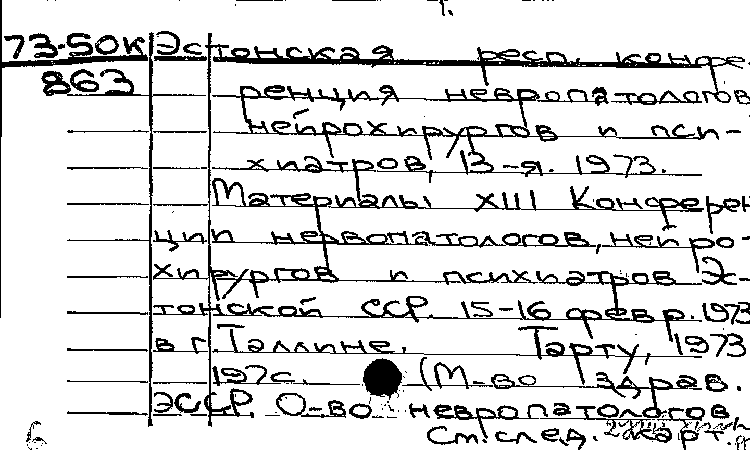 73-50К Эстонская респ. конфе-
863 ренция невропатологов
нейрохирургов и пси-
хиатров, 13-я. 1973.
Материалы XIII Конферен
ции нервопатологов, нейро-
хирургов и психиатров Эс-
тонской ССР. 15-16 февр. 1973
в г. Таллине. Тарту, 1973
197с. (М-во здрав.
ЭССР. О-во невропатологов
6 См. след. карт.